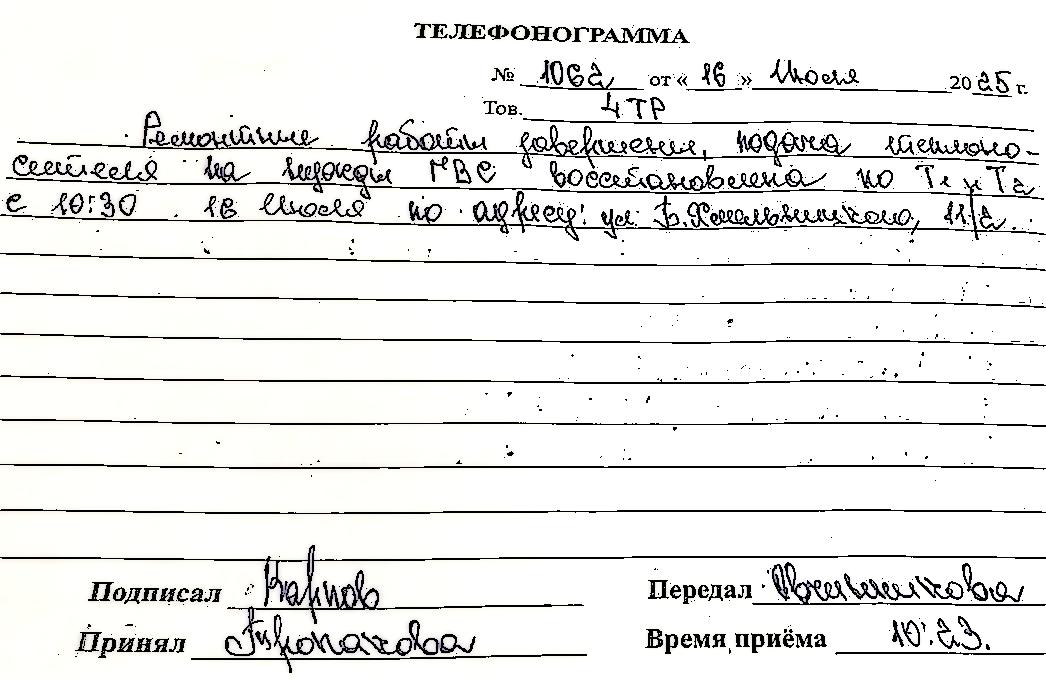 ТЕЛЕФОНОГРАММА
№ 1062 от « 16 » Июля 2025 г.
Тов. 4 ТР
Ремонтные работы завершены, подача теплоно-
сителя на нужды ГВС восстановлена по Т1 и Т2
с 10:30 16 Июля по адресу: ул. Б.Хмельницкого, 11/2.
Подписал Карпов Передал
Принял Время приёма 10:23.